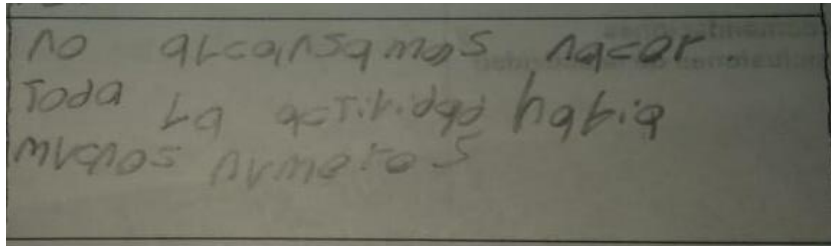 no alcansamos hacer.
Toda La actividad habia
muchos numeros